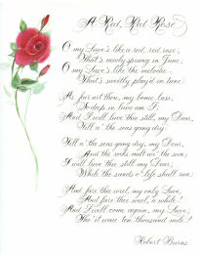 A Red, Red Rose
O my Luve's like a red, red rose,
That's newly sprung in June;
O my Luve's like the melodie
That's sweetly play'd in tune.
As fair art thou, my bonie lass,
So deep in luve am I;
And I will love thee still, my Dear,
Till a' the seas gang dry.
Till a' the seas gang dry, my Dear,
And the rocks melt wi' the sun;
I will love thee still, my Dear,
While the sands o' life shall run.
And fare thee weel, my only Luve,
And fare thee weel, a while!
And I will come again, my Luve,
Tho' it were ten thousand mile!
Robert Burns